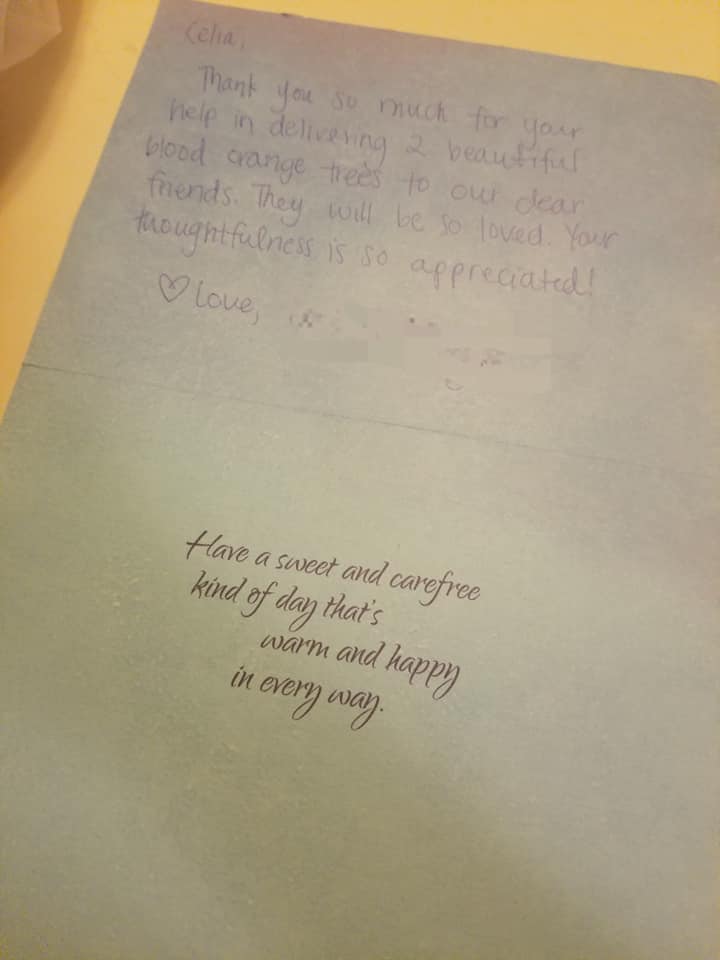 Celia,
Thank you so much for your
help in delivering 2 beautiful
blood orange trees to our dear
friends. They will be so loved. Your
thoughtfulness is so appreciated!
♡ Love,
Have a sweet and carefree
kind of day that's
warm and happy
in every way.